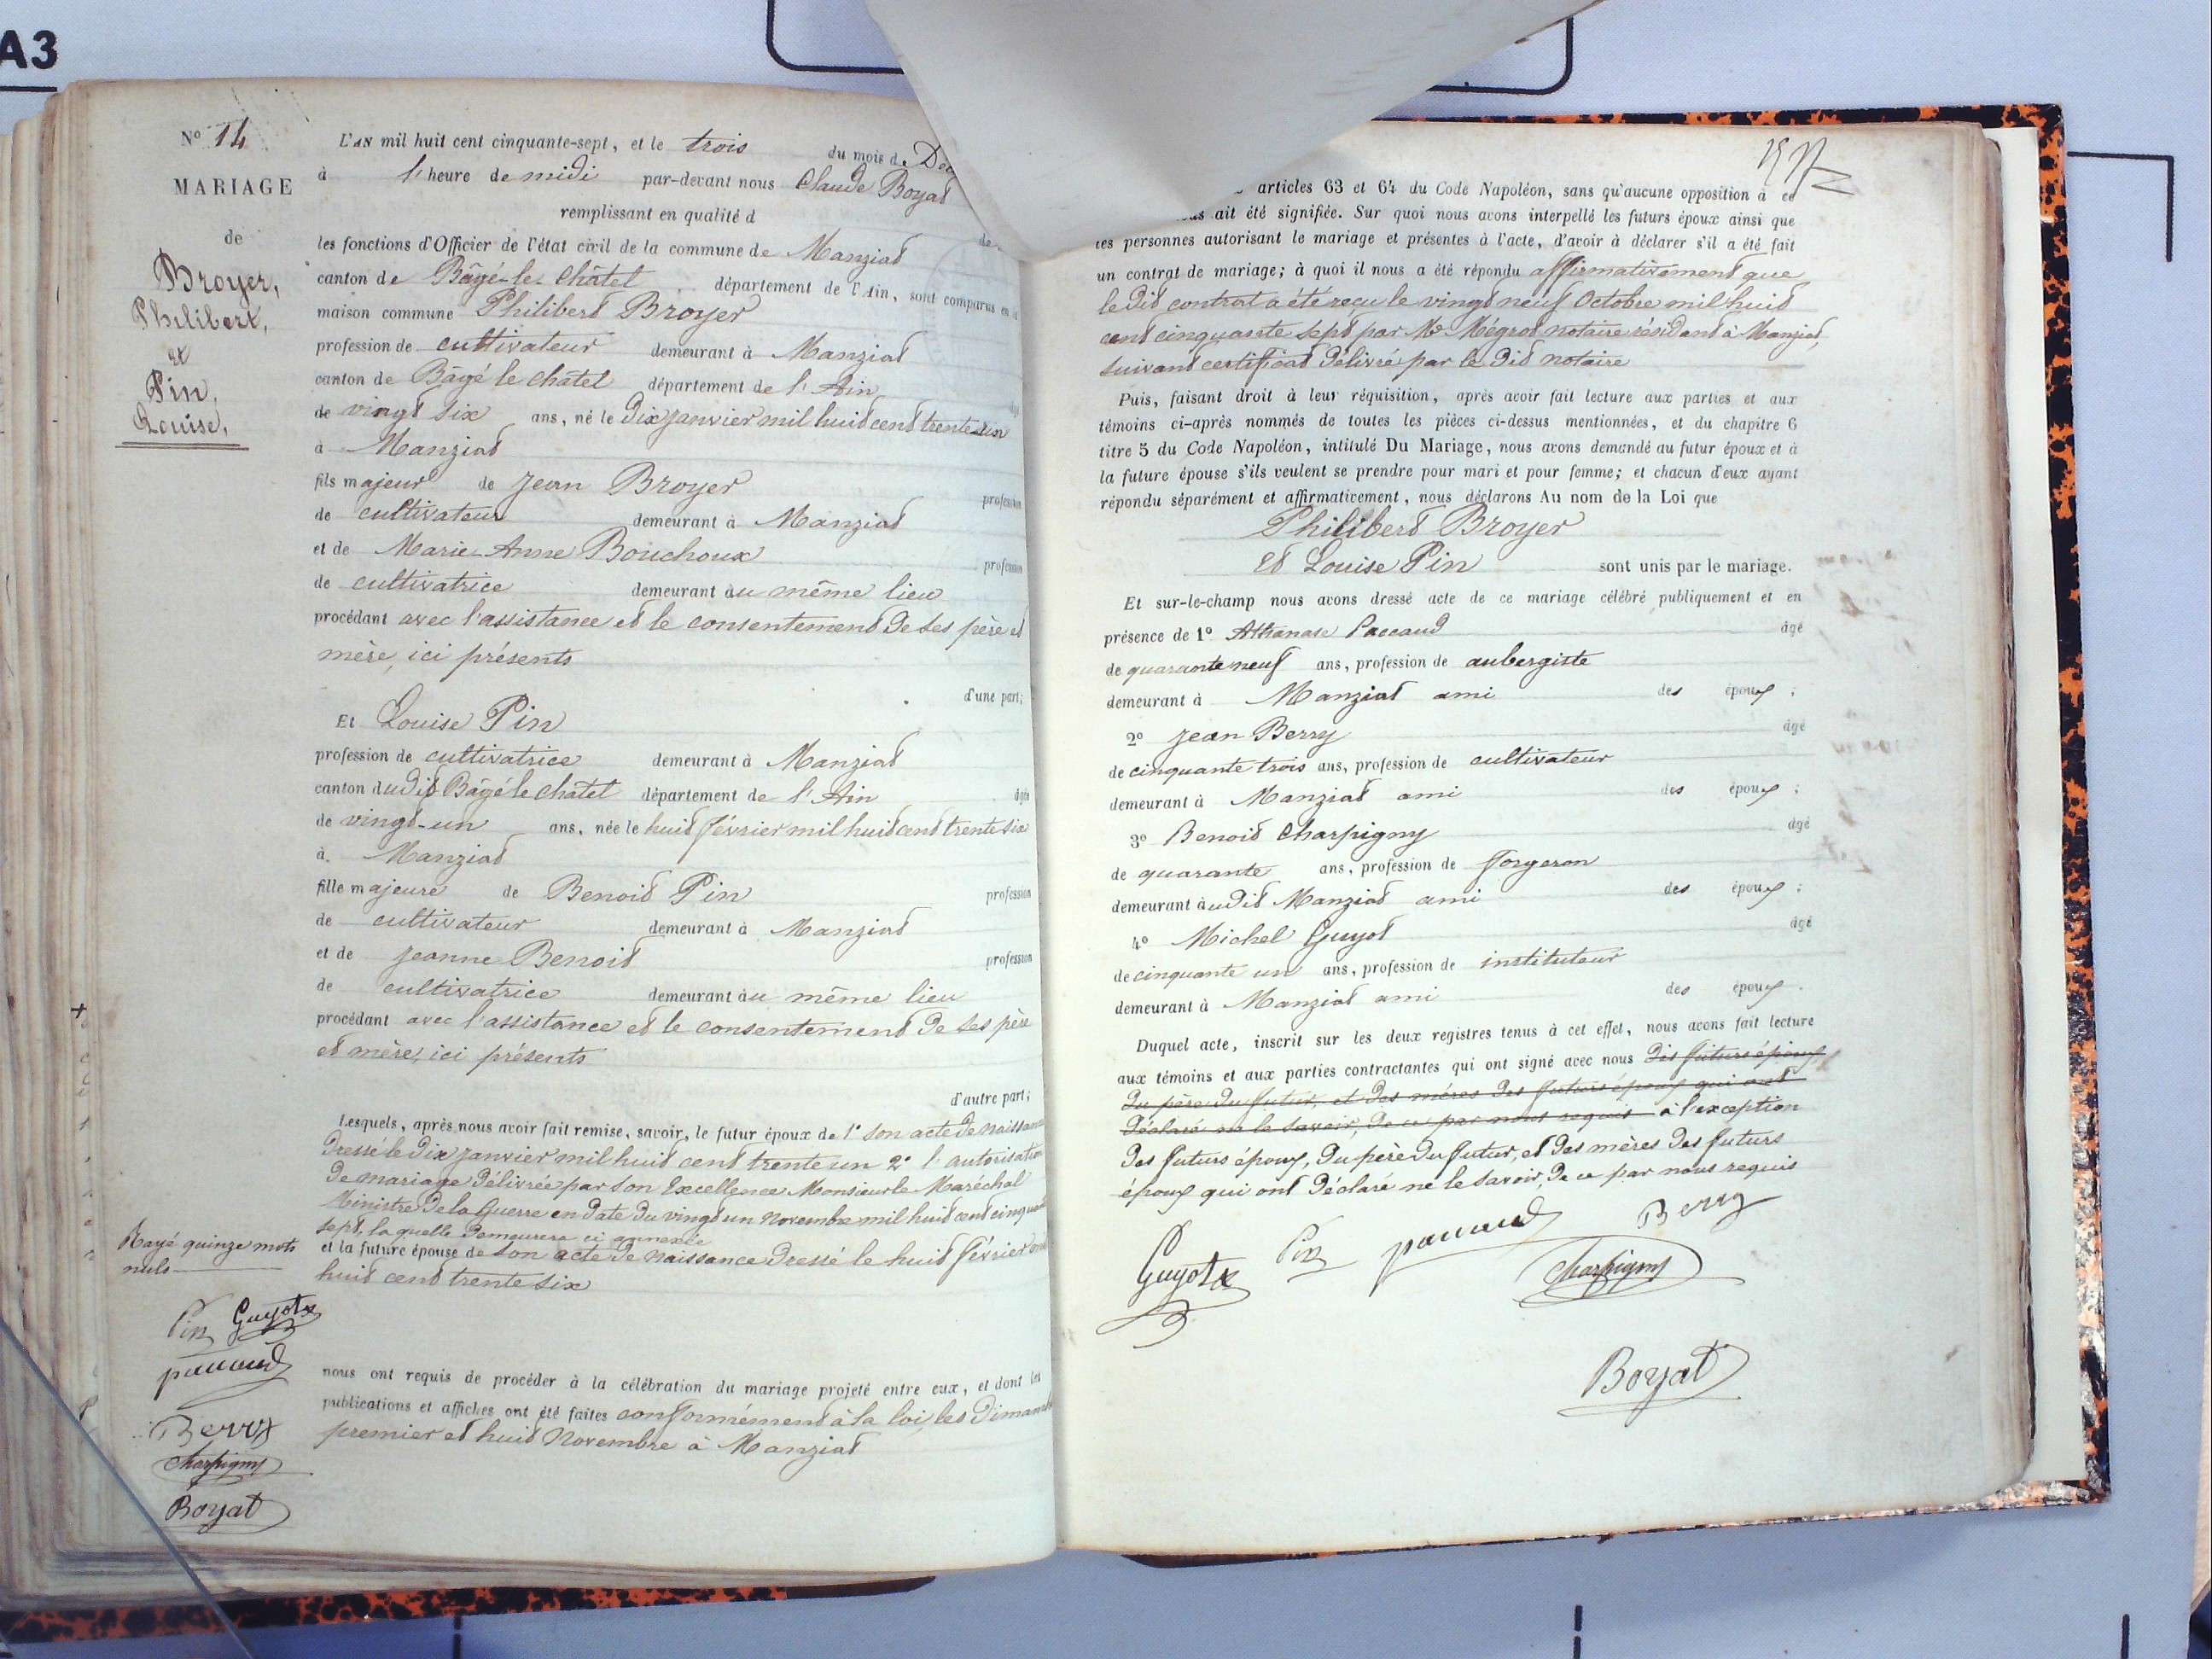 A3
N° 14
MARIAGE
de
Broyer,
Philibert,
et
Pin,
Louise,
L'AN mil huit cent cinquante-sept, et le trois du mois de Déc
à l'heure de midi par-devant nous Claude Boyat
remplissant en qualité d
les fonctions d'Officier de l'état civil de la commune de Manziat
canton de Bâgé-le-Châtel département de l'Ain, sont comparus en la
maison commune Philibert Broyer
profession de cultivateur demeurant à Manziat
canton de Bâgé le châtel département de l'Ain
de vingt six ans, né le dix janvier mil huit cent trente un
à Manziat
fils majeur de Jean Broyer profession
de cultivateur demeurant à Manziat
et de Marie-Anne Bouchoux profession
de cultivatrice demeurant au même lieu
procédant avec l'assistance et le consentement de ses père et
mère, ici présents
d'une part;
Et Louise Pin
profession de cultivatrice demeurant à Manziat
canton dudit Bâgé le châtel département de l'Ain âgée
de vingt-un ans, née le huit février mil huit cent trente six
à Manziat
fille majeure de Benoit Pin profession
de cultivateur demeurant à Manziat
et de Jeanne Benoit profession
de cultivatrice demeurant au même lieu
procédant avec l'assistance et le consentement de ses père
et mère, ici présents
d'autre part;
Lesquels, après nous avoir fait remise, savoir, le futur époux de 1° son acte de naissance
dressé le dix janvier mil huit cent trente un 2° l'autorisation
de mariage délivrée par son Excellence Monsieur le Maréchal
Ministre de la Guerre en date du vingt un novembre mil huit cent cinquante
sept, la quelle demeurera ci annexée
et la future épouse de son acte de naissance dressé le huit février mil
huit cent trente six
Rayé quinze mots
nuls
Pin Guyot
paccaud
Berry
Charpigny
Boyat
nous ont requis de procéder à la célébration du mariage projeté entre eux, et dont les
publications et affiches ont été faites conformément à la loi, les dimanches
premier et huit Novembre à Manziat
articles 63 et 64 du Code Napoléon, sans qu'aucune opposition à ce
ait été signifiée. Sur quoi nous avons interpellé les futurs époux ainsi que
les personnes autorisant le mariage et présentes à l'acte, d'avoir à déclarer s'il a été fait
un contrat de mariage; à quoi il nous a été répondu affirmativement que
le dit contrat a été reçu le vingt neuf Octobre mil huit
cent cinquante sept par Me Mégrot notaire résidant à Manziat,
suivant certificat délivré par le dit notaire
Puis, faisant droit à leur réquisition, après avoir fait lecture aux parties et aux
témoins ci-après nommés de toutes les pièces ci-dessus mentionnées, et du chapitre 6
titre 5 du Code Napoléon, intitulé Du Mariage, nous avons demandé au futur époux et à
la future épouse s'ils veulent se prendre pour mari et pour femme; et chacun d'eux ayant
répondu séparément et affirmativement, nous déclarons Au nom de la Loi que
Philibert Broyer
et Louise Pin sont unis par le mariage.
Et sur-le-champ nous avons dressé acte de ce mariage célébré publiquement et en
présence de 1° Athanase Paccaud âgé
de quarante neuf ans, profession de aubergiste
demeurant à Manziat ami des époux;
2° Jean Berry âgé
de cinquante trois ans, profession de cultivateur
demeurant à Manziat ami des époux;
3° Benoit Charpigny âgé
de quarante ans, profession de forgeron
demeurant audit Manziat ami des époux;
4° Michel Guyot âgé
de cinquante un ans, profession de instituteur
demeurant à Manziat ami des époux.
Duquel acte, inscrit sur les deux registres tenus à cet effet, nous avons fait lecture
aux témoins et aux parties contractantes qui ont signé avec nous dis futurs époux,
du père du futur, et des mères des futurs époux qui ont
déclaré ne le savoir, de ce par nous requis à l'exception
des futurs époux, du père du futur, et des mères des futurs
époux qui ont déclaré ne le savoir, de ce par nous requis
Guyot Pin paccaud Berry
Charpigny
Boyat